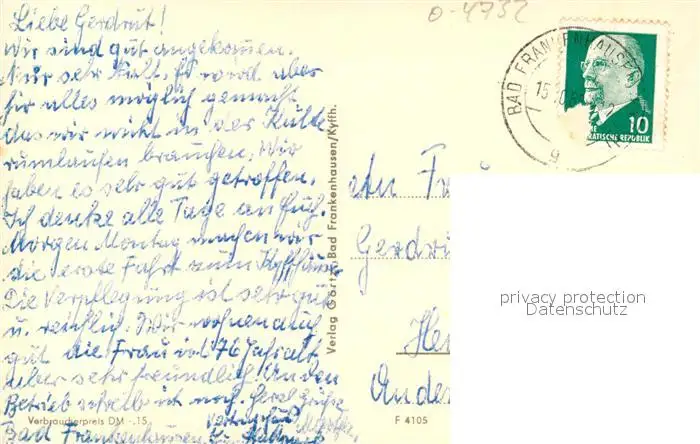 o-4732
Liebe Gerdrut!
Wir sind gut angekommen.
Nur sehr kalt. Es wird aber
für alles möglich gemacht
das wir nicht in der Kälte
rumlaufen brauchen. Wir
haben es sehr gut getroffen.
Ich denke alle Tage an Euch.
Morgen Montag machen wir
die erste Fahrt zum Kyffhäuser
Die Verpflegung ist sehr gut
u. reichlich. Wir wohnen auch
gut die Frau ist 76 Jahr alt
aber sehr freundlich. An den
Betrieb schreib ich noch. Herzl. Grüße
Bad Frankenhausen
Verbraucherpreis DM -.15
Verlag Görtz, Bad Frankenhausen/Kyffh.
F 4105
BAD FRANKENHAUSEN
15.10.
10
ATISCHE REPUBLIK
An Fr
Gerdru
He
Ander
privacy protection
Datenschutz